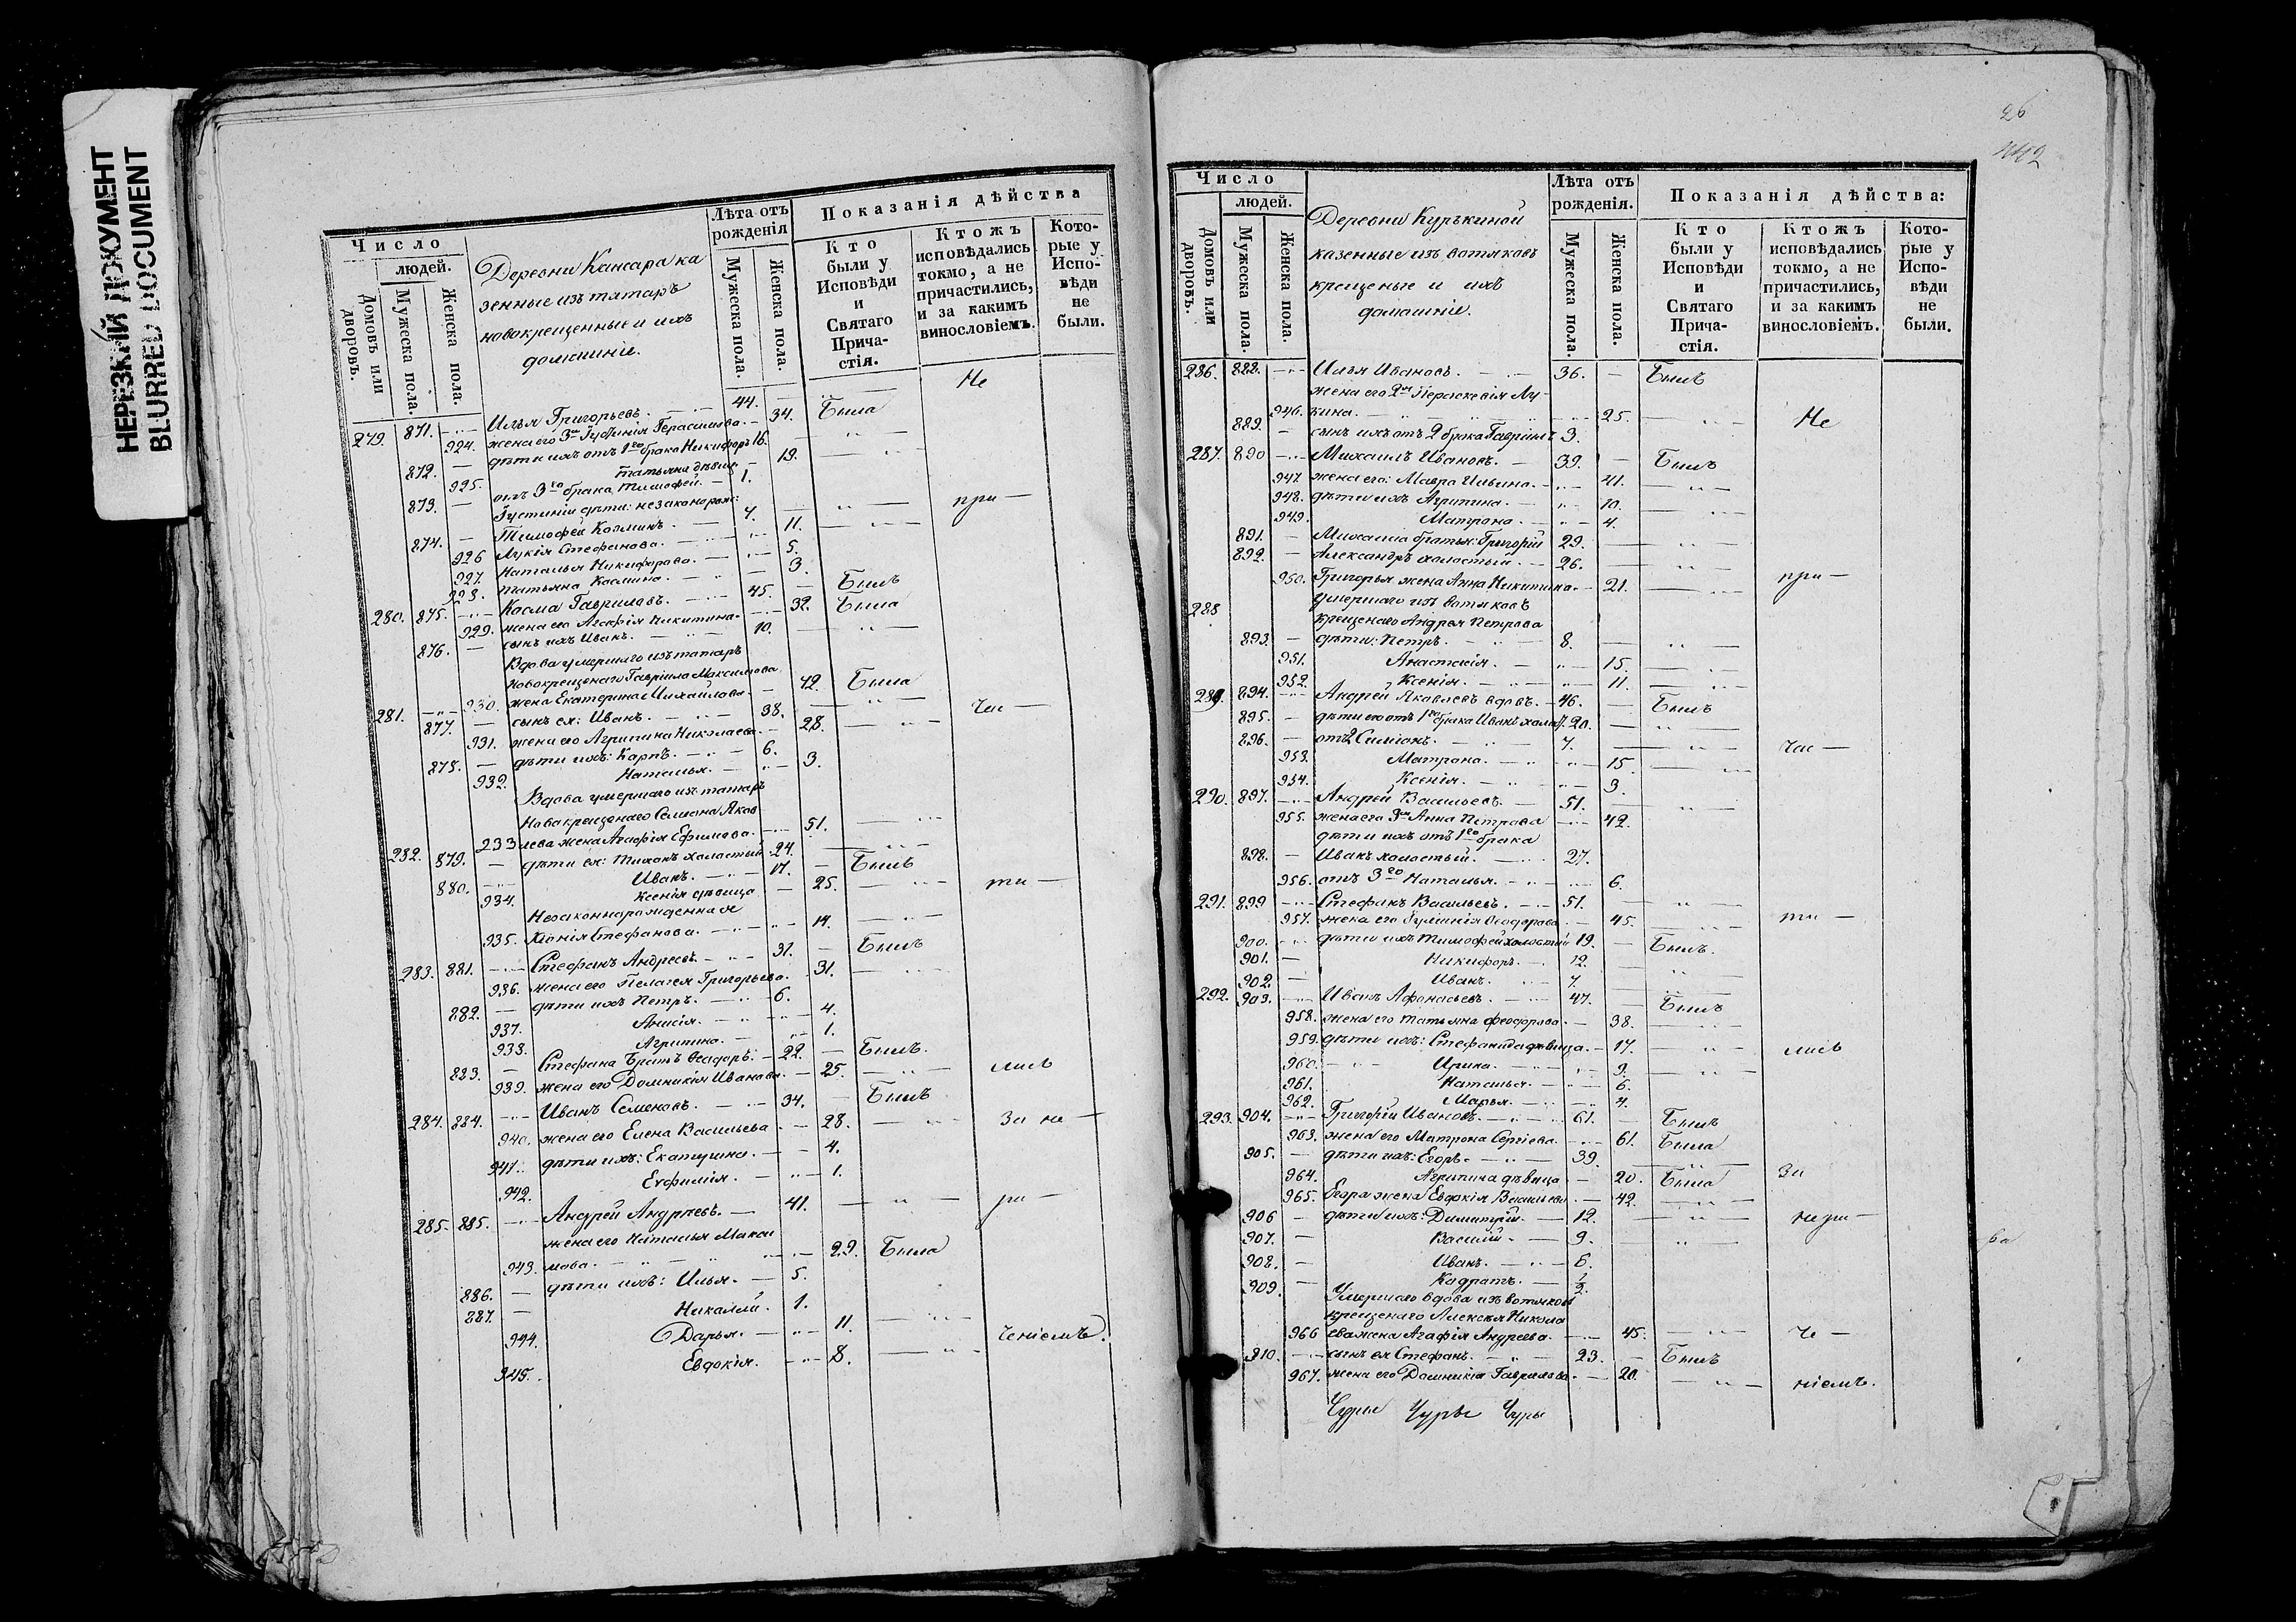 НЕРЕЗКИЙ ДОКУМЕНТ
BLURRED DOCUMENT
Число
людей.
Домовъ или дворовъ.
Мужеска пола.
Женска пола.
Деревни Кансара ка
зенные изъ татаръ
новокрещенные и ихъ
домашніе.
Лѣта отъ рожденія
Мужеска пола.
Женска пола.
Показанія дѣйства
Кто были у Исповѣди и Святаго Причастія.
Ктожъ исповѣдались токмо, а не причастились, и за какимъ винословіемъ.
Которые у Исповѣди не были.
279. 871. Илья Григорьевъ. 44. Не
924. жена его 3мъ Іустинія Герасимова. 34. Была
872. дѣти ихъ отъ 1го брака Никифоръ 16.
925. Татьяна дѣвица 19.
873. отъ 3го брака Тимофей. 1.
Іустиніи дѣти: незаконорож:
874. Тимофей Козминъ. 7. при
926 Лукія Стефанова. 11.
927. Наталья Никифорова. 5.
928. Татьяна Касмина. 3.
280. 875. Касма Гавриловъ. 45. Былъ
929. жена его Агафія Никитина. 32. Была
876. сынъ ихъ Иванъ. 10.
Вдова умершаго изъ татаръ
Новокрещенаго Гавріила Максимова
281. 930. жена Екатерина Михайлова. 42. Была
877. сынъ ея: Иванъ. 38. Час
931. жена его Агрипина Николаева. 28.
878. дѣти ихъ: Карпъ. 6.
932. Наталья. 3.
Вдова умершаго изъ татаръ
Новокрещенаго Семиона Яков
282. 933 лева жена Агафія Ефимова. 51.
879. дѣти ея: Тихонъ холостый 24.
880. Иванъ. 17. Былъ
934. Ксенія дѣвица 25. ти
Незаконнорожденная
935. Хіонія Стефанова. 14.
283. 881. Стефанъ Андреевъ. 31. Былъ
936. жена его Пелагея Григорьева. 31.
882. дѣти ихъ Петръ. 6.
937. Анисія. 4.
938. Агрипина. 1.
883. Стефана братъ Ѳеодоръ. 22. Былъ.
939. жена его Домникія Иванова. 25. лись
284. 884. Иванъ Семеновъ. 34. Былъ
940. жена его Елена Васильева 28. За не
941. дѣти ихъ: Екатерина. 4.
942. Евфимія. 1.
285. 885. Андрей Андреевъ. 41. ра
жена его Наталья Макси
943. мова. 29. Была
886. дѣти ихъ: Илья. 5.
887. Николай. 1.
944. Дарья. 11.
945. Евдокія. 8. ченіемъ.
26
442
Число
людей.
Домовъ или дворовъ.
Мужеска пола.
Женска пола.
Деревни Курькиной
казенные изъ вотяковъ
крещеные и ихъ
домашніе.
Лѣта отъ рожденія.
Мужеска пола.
Женска пола.
Показанія дѣйства:
Кто были у Исповѣди и Святаго Причастія.
Ктожъ исповѣдались токмо, а не причастились, и за какимъ винословіемъ.
Которые у Исповѣди не были.
286. 888. Илья Ивановъ. 36. Былъ
жена его 2мъ Параскевія Лу
946. кина. 25. Не
889. сынъ ихъ отъ 2 брака Гавріилъ 3.
287. 890 Михаилъ Ивановъ. 39. Былъ
947. жена его: Мавра Ильина. 41.
948. дѣти ихъ Агрипина. 10.
949. Матрона. 4.
891. Михаила братья: Григорій 29.
892. Александръ холостый. 26.
950. Григорья жена Анна Никитина. 21. при
288 Умершаго изъ вотяковъ
крещенаго Андрея Петрова
893. дѣти: Петръ. 8.
951. Анастасія. 15.
952. Ксенія. 11.
289. 894. Андрей Яковлевъ вдовъ. 46. Былъ
895. дѣти его отъ 1го брака Иванъ холос. 20.
896. отъ 2 Симіонъ. 7. час
953. Матрона. 15.
954. Ксенія. 3.
290. 897. Андрей Васильевъ. 51.
955. жена его 3мъ Анна Петрова 42.
дѣти ихъ отъ 1го брака
898. Иванъ холостый. 27.
956. отъ 3го Наталья. 6.
291. 899 Стефанъ Васильевъ. 51.
957. жена его Іулианія Ѳеодорова. 45. ти
900. дѣти ихъ Тимофей холостый 19. Былъ.
901. Никифоръ. 12.
902. Иванъ. 7.
292. 903. Иванъ Афанасьевъ. 47. Былъ
958. жена его Татьяна Феодорова. 38.
959. дѣти ихъ: Стефанида дѣвица. 17. лись
960. Ирина. 9.
961. Наталья. 6.
962. Марья. 4.
293. 904. Григорій Ивановъ. 61. Былъ
963. жена его Матрона Сергіева. 61. Была
905. дѣти ихъ: Егоръ. 39.
964. Агрипина дѣвица 20. Была За
965. Егора жена Евдокія Васильева. 42.
906 дѣти ихъ: Димитрій. 12. нера
907. Василій. 9.
908. Иванъ. 6.
909. Кодратъ. 1/2.
Умершаго вдова изъ вотяковъ
крещенаго Алексѣя Никола
966 ева жена Агафія Андреева. 45. че
910. сынъ ея Стефанъ. 23. Былъ
967. жена его Домникія Гаврилова. 20. ніемъ.